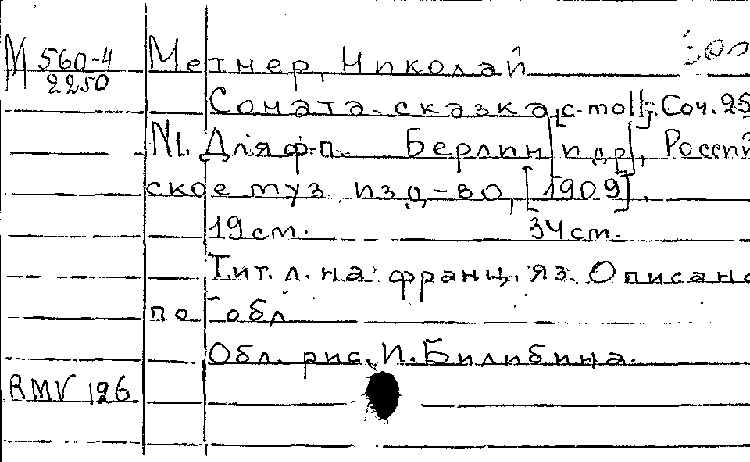 М 560-4 Метнер, Николай
2250
Соната-сказка [c-moll]. Соч. 25
N1. Для ф-п. Берлин [и др], Россий
ское муз. изд-во, [1909].
19 cm. 34 cm.
Тит. л. на франц. яз. Описано
по обл
Обл. рис. И. Билибина.
RMV 126